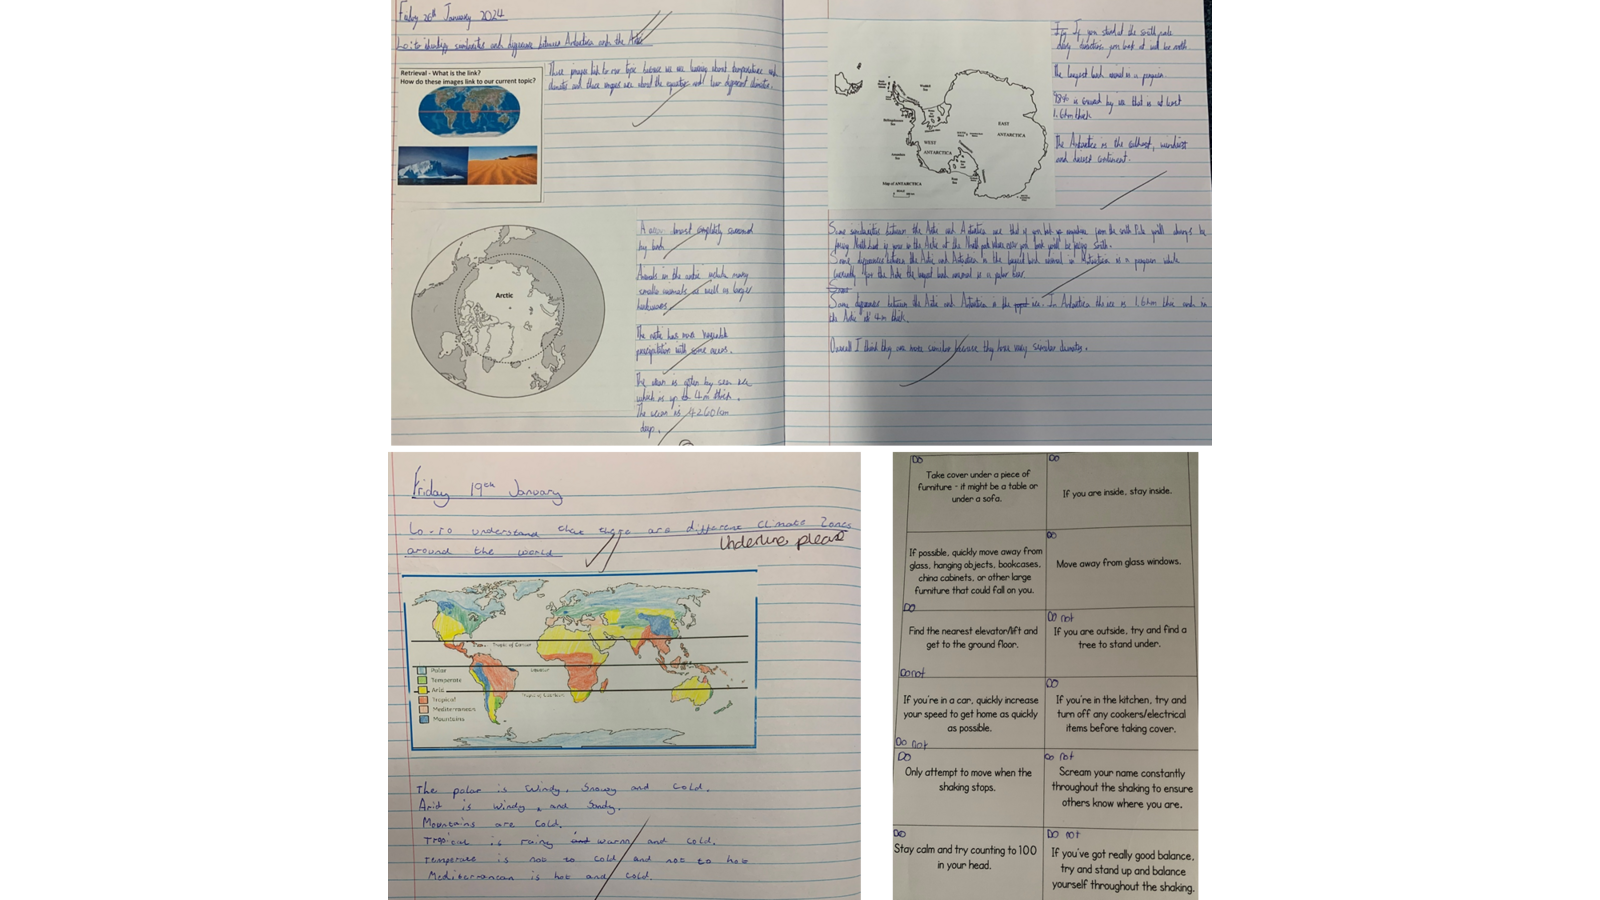 Friday 26th January 2024
Lo: to identify similarities and differences between Antarctica and the Arctic
Retrieval - What is the link?
How do these images link to our current topic?
These images link to our topic because we are learning about temperature and
climates and these images are about the equator and how different climates.
Arctic
almost completely surrounded
by land
Animals in the arctic include many
smaller mammals as well as larger
The arctic has more variable
precipitation with some areas.
The ocean is often by sea ice
which is up to 4m thick.
The ocean is 4260km
deep.
EAST
ANTARCTICA
WEST
ANTARCTICA
Map of ANTARCTICA
If you stand at the south pole
any direction you look at will be north
The largest land animal is a penguin.
98% is covered by ice that is at least
1.6km thick
The Antarctica is the coldest, windiest
and driest continent.
Some similarities between the Artic and Antarctica are that if you look anywhere from the south Pole you'll always be
facing North but if your in the Artic at the North pole where ever you look you'll be facing south.
Some differences between the Artic and Antarctica is the largest land animal in Antarctica is a penguin while
for the Artic the largest land animal is a polar bear.
Some
Some differences between the Artic and Antarctica is the ice. In Antarctica the ice is 1.6km thic and in
the Artic it 4m thick.
Overall I think they are more similar because they have very similar climates.
Friday 19th January
Lo-To understand that there are different climate zones
around the world
Underline, please
Tropic of Cancer
Equator
Tropic of Capricorn
Polar
Temperate
Arid
Tropical
Mediterranean
Mountains
The polar is windy, snowy and cold.
Arid is windy and sandy.
Mountains are cold.
Tropical is rainy and warm and cold.
Temperate is not to cold and not to hot
Mediterranean is hot and cold.
DO
Take cover under a piece of
furniture - it might be a table or
under a sofa.
DO
If you are inside, stay inside.
If possible, quickly move away from
glass, hanging objects, bookcases,
china cabinets, or other large
furniture that could fall on you.
DO
DO
Move away from glass windows.
Find the nearest elevator/lift and
get to the ground floor.
Do not
DO not
If you are outside, try and find a
tree to stand under.
If you're in a car, quickly increase
your speed to get home as quickly
as possible.
Do not
DO
If you're in the kitchen, try and
turn off any cookers/electrical
items before taking cover.
DO
Only attempt to move when the
shaking stops.
DO not
Scream your name constantly
throughout the shaking to ensure
others know where you are.
DO
Stay calm and try counting to 100
in your head.
DO not
If you've got really good balance,
try and stand up and balance
yourself throughout the shaking.